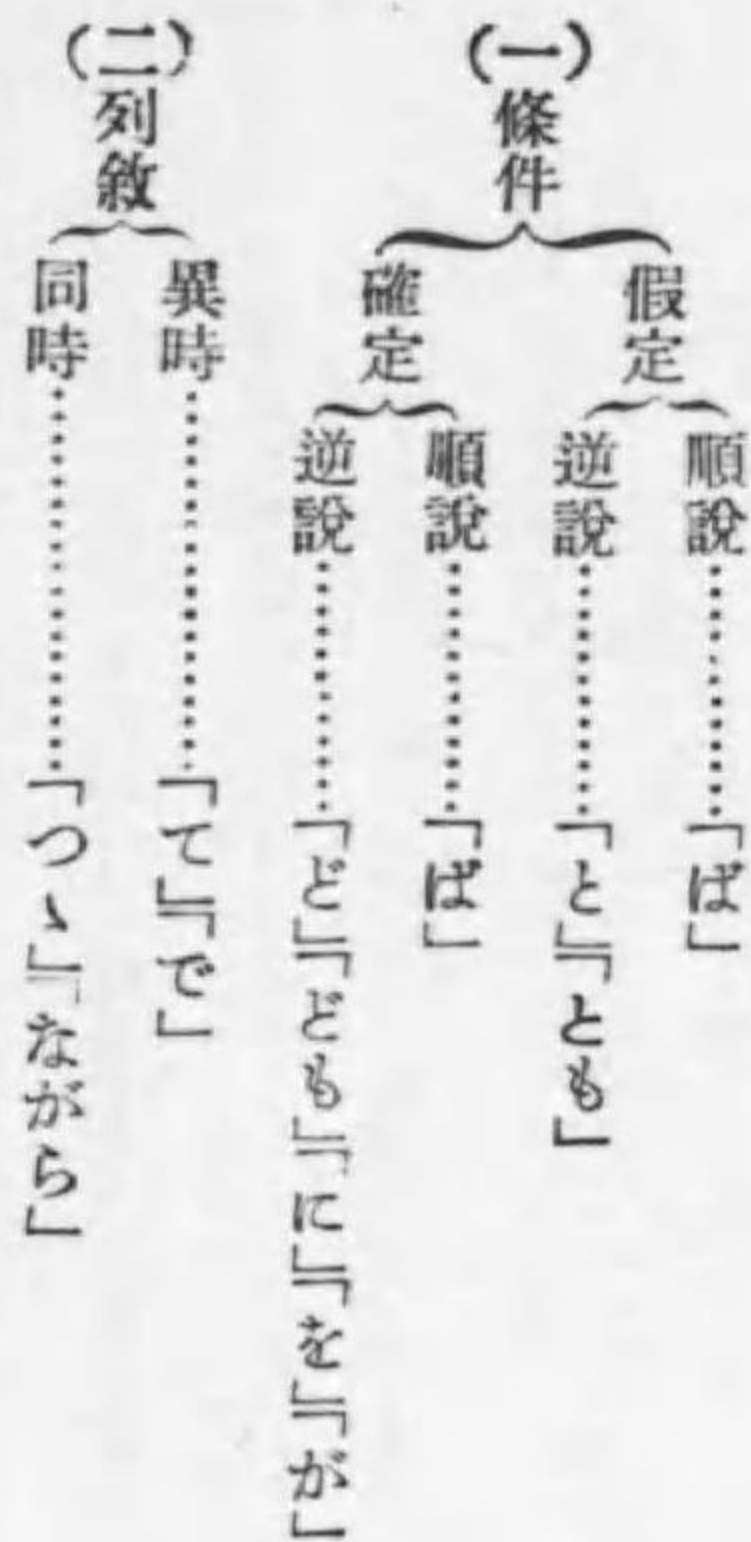 (一)條件
假定
順說…………「ば」
逆說…………「と」「とも」
確定
順說…………「ば」
逆說…………「ど」「ども」「に」「を」「が」
(二)列敘
異時…………「て」「で」
同時…………「つゝ」「ながら」